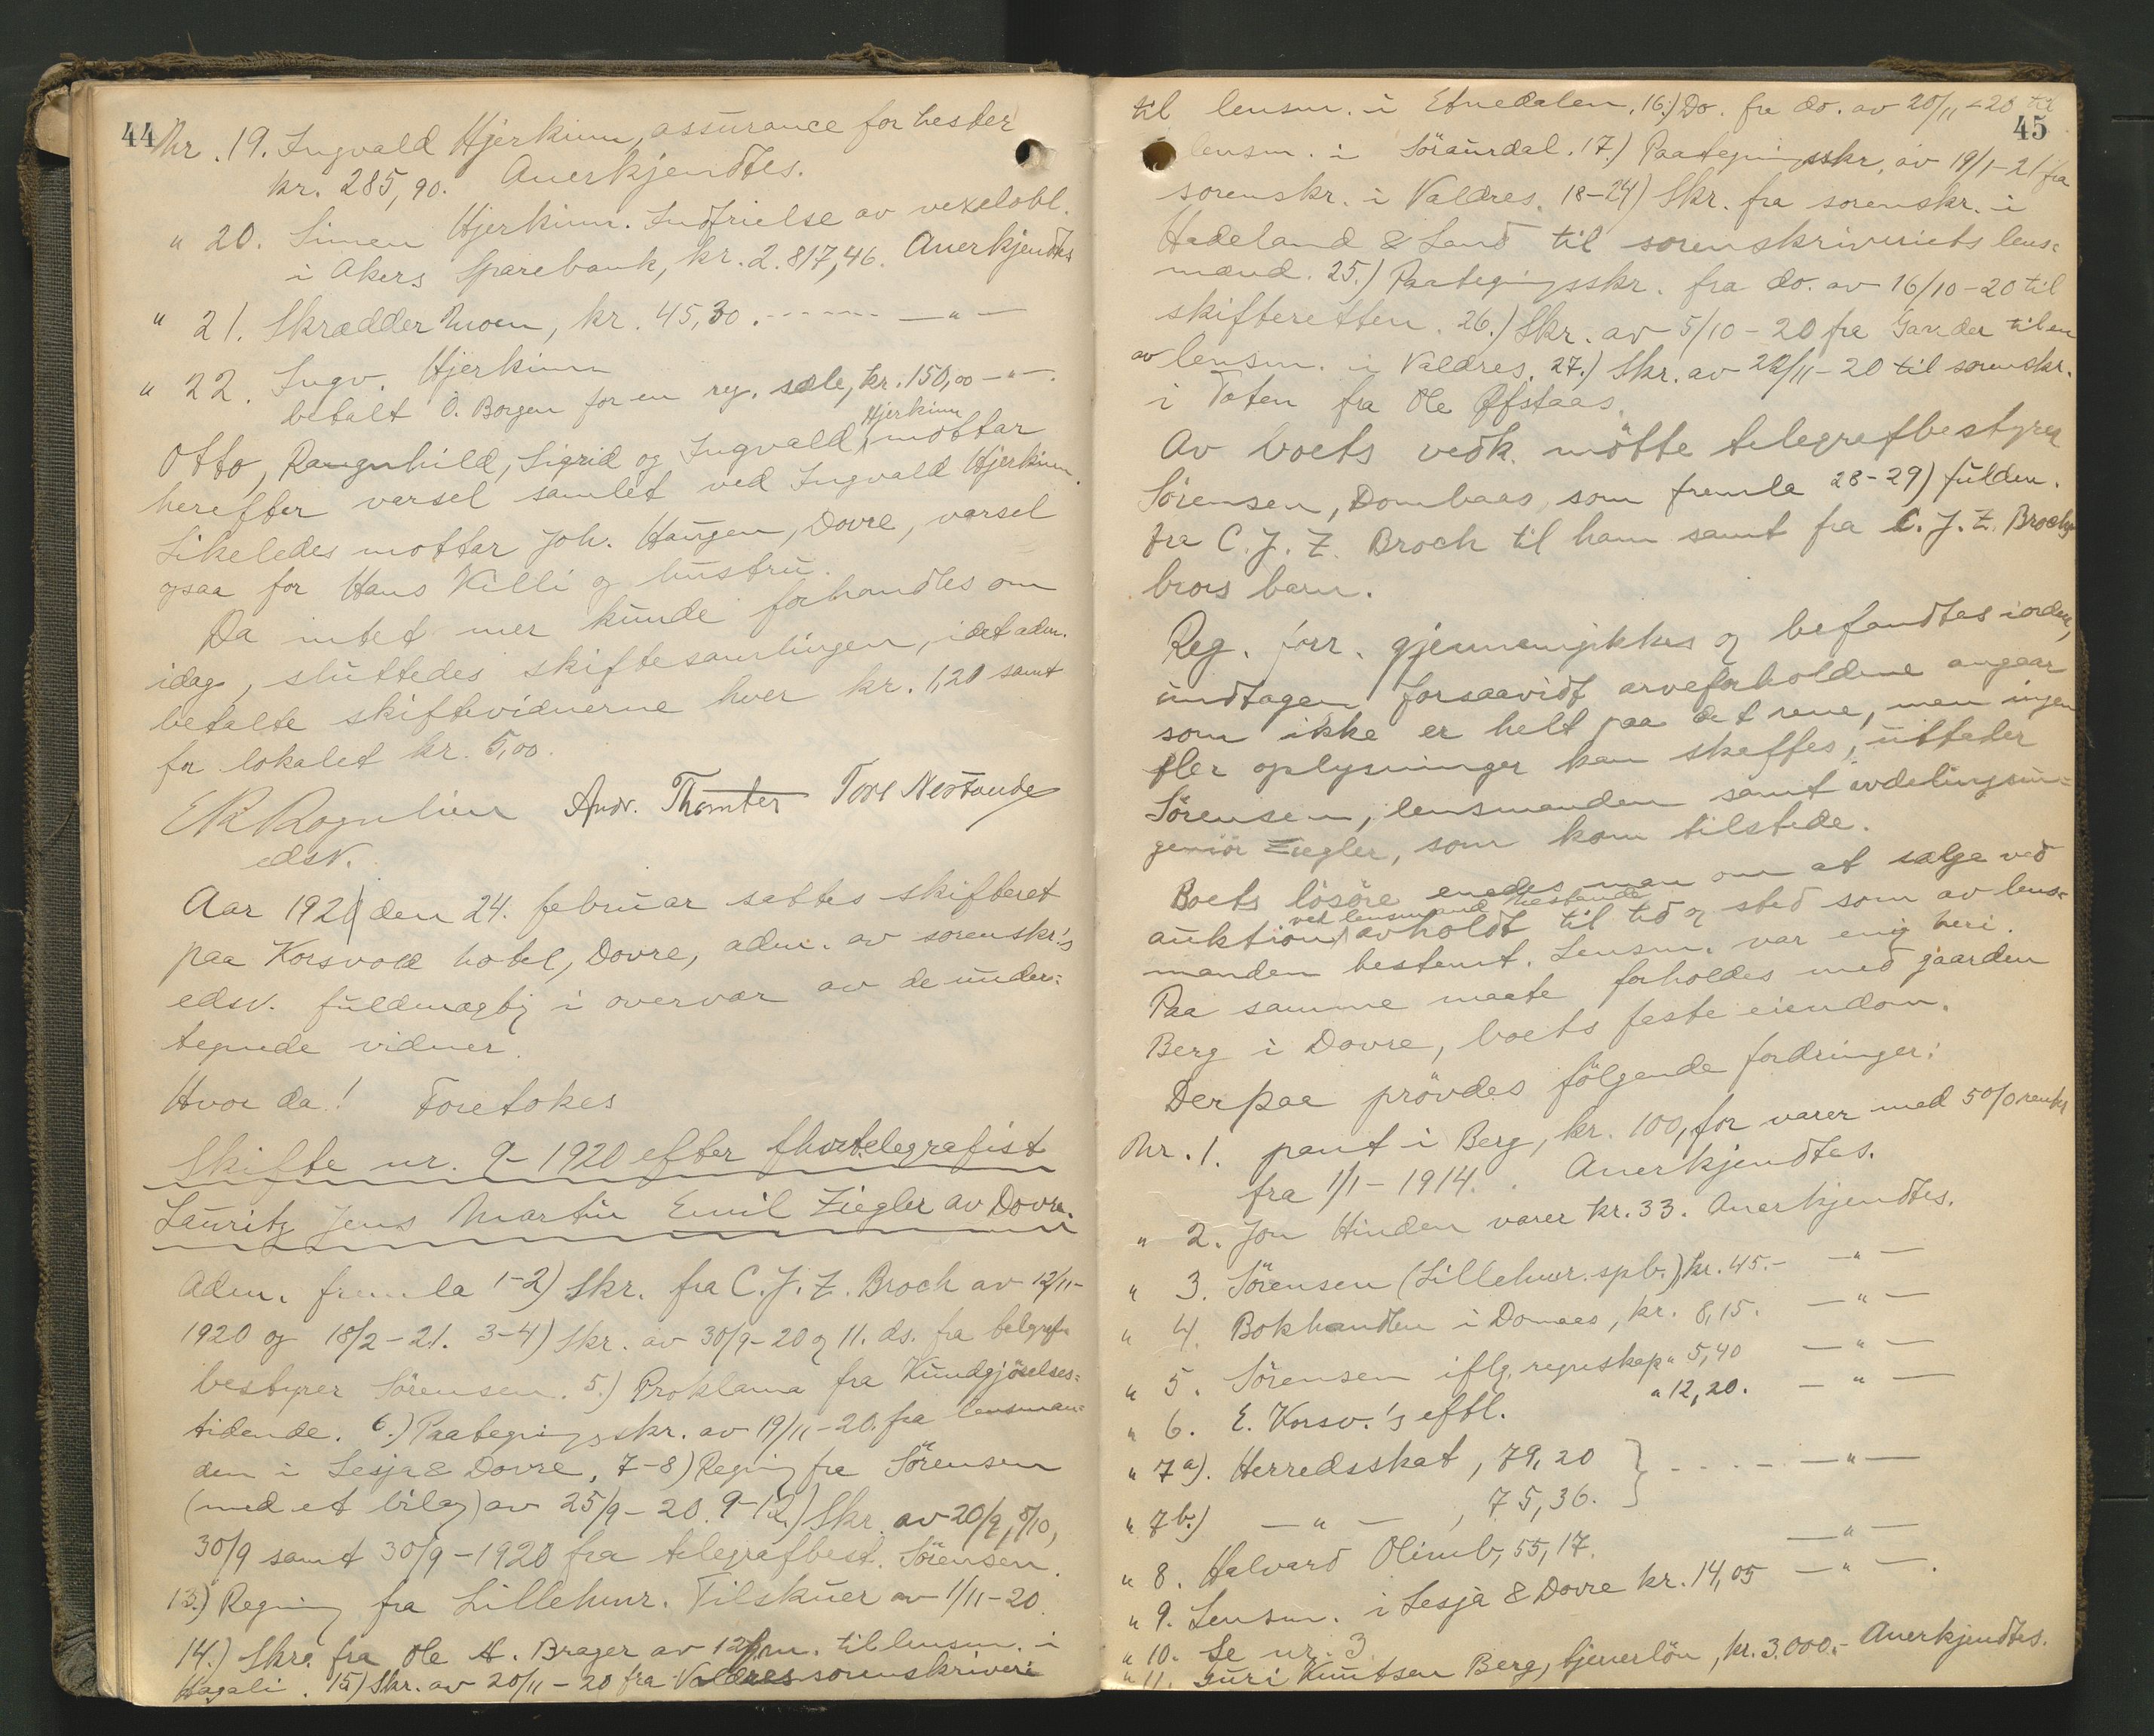 44
Nr. 19. Ingvald Hjerkinn, assurance for hester
kr. 285,90. Anerkjendtes.
" 20. Simen Hjerkinn. Indfrielse av vexelobl.
i Akers Sparebank, kr. 2.817,46. Anerkjendtes
" 21. Skrædder Moen, kr. 45,30. ------ —"—
" 22. Ingv. Hjerkinn
betalt O. Borgen for en ny. sæle, kr. 150,00 —"—.
Otto, Rangnhild, Sigrid og Ingvald Hjerkinn mottar
herefter varsel samlet ved Ingvald Hjerkinn.
Likeledes mottar Joh. Haugen, Dovre, varsel
ogsaa for Hans Killi og hustru.
Da intet mer kunde forhandles om
idag, sluttedes skiftesamlingen, idet adm.
betalte skiftevidnerne hver kr. 1,20 samt
for lokalet kr. 5,00.
E R Rognlien Andr. Thomter Tore Nestande
edsv.
Aar 1921 den 24. februar sattes skifteret
paa Korsvold hotel, Dovre, adm. av sorenskr.'s
edsv. fuldmægtig i overvær av de under=
tegnede vidner.
Hvor da! Foretokes
Skifte nr. 9-1920 efter fhv. telegrafist
Lauritz Jens Martin Emil Ziegler av Dovre.
Adm. fremla 1-2) Skr. fra C. J. Z. Broch av 12/11-
1920 og 18/2-21. 3-4) Skr. av 30/9-20 og 11. ds. fra telegraf=
bestyrer Sörensen. 5.) Proklama fra Kundgjörelses=
tidende. 6.) Paategningsskr. av 19/11-20. fra lensman=
den i Lesja & Dovre, 7-8) Regning fra Sörensen
(med et bilag) av 25/9-20. 9-12.) Skr. av 20/9, 5/10,
30/9 samt 30/9-1920 fra telegrafbest. Sörensen.
13.) Regning fra Lillehmr. Tilskuer av 1/11-20.
14.) Skr. fra Ole A. Brager av til lensm. i
15) Skr. av 20/11-20 fra Valdres sorenskriveri
45
til lensm. i Etnedalen. 16.) Do. fra do. av 20/11-20 til
lensm. i Söraurdal. 17.) Paategningsskr. av 19/1-21 fra
sorenskr. i Valdres. 18-24) Skr. fra sorenskr. i
Hadeland & Land til sorenskriveriets lens=
mænd. 25.) Paategningsskr. fra do. av 16/10-20 til
skifteretten. 26.) Skr. av 5/10-20 fra til en
av lensm. i Valdres. 27.) Skr. av 22/11-20 til sorenskr.
i Toten fra Ole Öfstaas.
Av boets vedk. mötte telegrafbestyrer
Sörensen, Dombaas, som fremla 28-29) fuldm.
fra C. J. Z. Broch til ham samt fra C. J. Z. Brochs
brors barn.
Reg. forr. gjennemgikkes og befandtes iorden,
undtagen forsaavidt arveforholdene angaar
som ikke er helt paa det rene, men ingen
fler oplysninger kan skaffes, uttaler
Sörensen, lensmanden samt avdelingsin=
geniör Ziegler, som kom tilstede.
Boets lösöre enedes man om at sælge ved
auktion ved lensmand Nestande avholdt til tid og sted som av lens=
manden bestemt. Lensm. var enig heri.
Paa samme maate forholdes med gaarden
Berg i Dovre, boets faste eiendom.
Derpaa prövdes fölgende fordringer:
Nr. 1. pant i Berg, kr. 100, for varer med 5 0/0 renter
fra 1/1-1914. . Anerkjendtes.
" 2. Jon Hinden varer kr. 33. Anerkjendtes.
" 3. Sörensen (Lillehmr. spb.), kr. 45.- —"—
" 4. Bokhandlen i Domaas, kr. 8,15. —"—
" 5. Sörensen iflg. regnskap " 5,40 —"—
" 6. E. Korsv.'s eftl. " 12,20. —"—
" 7a). Herredsskat, 79,20 } - - - - —"—
" 7b.) —"—, 75,36.
" 8. Halvard Olimb, 55,17. —"—
" 9. Lensm. i Lesja & Dovre kr. 14,05 —"—.
" 10. Se nr. 3
" 11. Guri Knutsen Berg, tjenerlön, kr. 3.000.- Anerkjendtes.